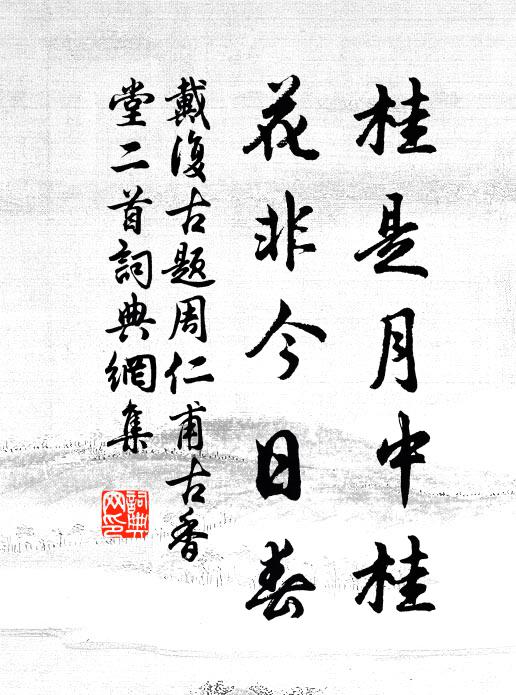 桂是月中桂
花非今日春
戴復古題周仁甫古香
堂二首詞典網集
詞典
网印